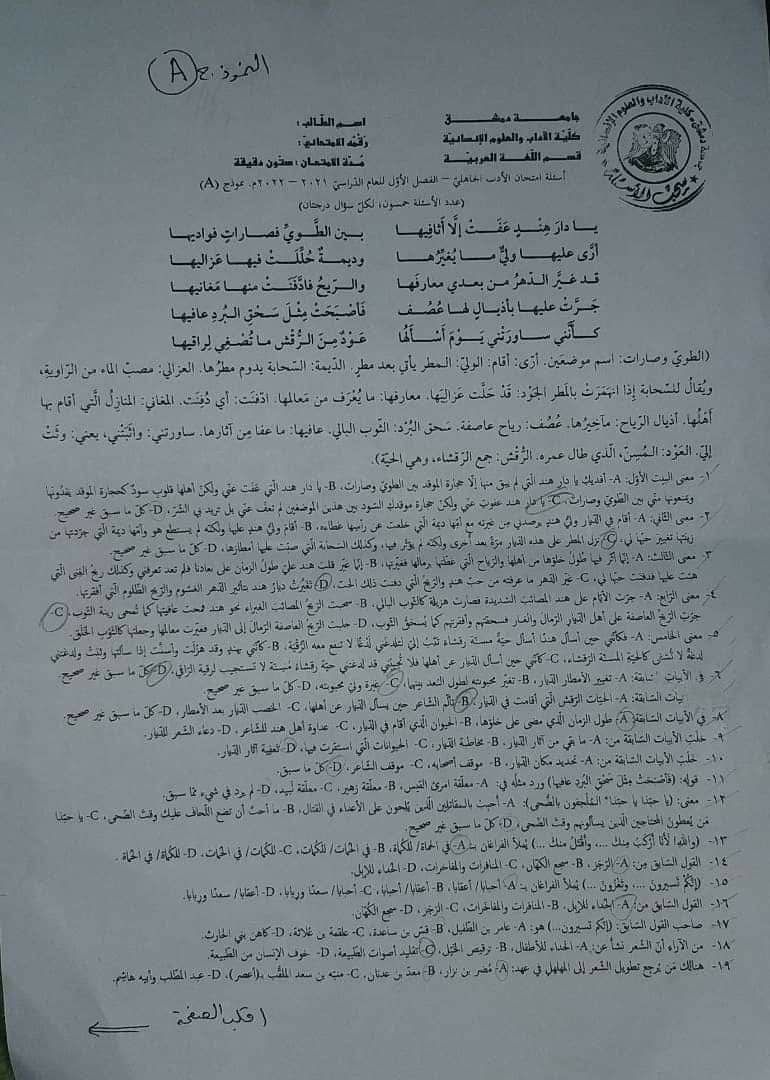 النموذج A
جامعة دمشق
كلية الآداب والعلوم الإنسانية
قسم اللغة العربية
اسم الطالب :
رقمه الامتحاني :
مدة الامتحان : ستون دقيقة
أسئلة امتحان الأدب الجاهلي – الفصل الأول للعام الدراسي ٢٠٢١ – ٢٠٢٢م. نموذج (A)
(عدد الأسئلة خمسون؛ لكل سؤال درجتان)
يا دارَ هِنْدٍ عَفَتْ إلّا أثافيها بين الطَّويِّ فصاراتٍ فواديها
أرَّى عليها وليٌّ ما يُغيِّرُها وديمةٌ حُلِّلَتْ فيها عَزاليها
قد غيَّرَ الدّهرُ من بعدي معارفَها والرّيحُ فادَّفَنَتْ منها مَغانيها
جَرَّتْ عليها بأذيالٍ لها عُصُف فَأصْبَحَتْ مِثْلَ سَحْقِ البُردِ عافيها
كأنَّني ساورَتْني يَوْمَ أَسْألُها عَوْدٌ مِنَ الرُّقْشِ ما تُصْغي لِراقيها
(الطويّ وصارات: اسم موضعَين. أرّى: أقام: الوليّ: المطر يأتي بعد مطرٍ. الدّيمة: السّحابة يدوم مطرُها. العزالي: مصبّ الماء من الرّاوية،
ويُقالُ للسّحابة إذا انهمَرَتْ بالمطر الجَوْد: قَدْ حَلَّت عَزاليَها. معارفها: ما يُعْرَف من معالمها. ادّفنَت: أي دُفِنَت. المغاني: المنازل الّتي أقام بها
أهلُها. أذيال الرّياح: مآخيرُها. عُصُف: رياح عاصفة. سَحق البُرْد: الثّوب البالي. عافيها: ما عفا مِن آثارها. ساورتني: واثبَتْني، يعني: وثَبَتْ
إليّ. العَوْد: المُسِنّ، الّذي طال عمره. الرُّقْش: جمع الرّقشاء، وهي الحيّة).
١- معنى البيت الأوّل: A- أفديك يا دار هند الّتي لم يبق منها إلّا حجارة الموقد بين الطويّ وصارات، B- يا دار هند الّتي عَفَت عنّي ولكنْ أهلها قلوب سودٌ كحجارة الموقد يفدونها
ويمنعونها منّي بين الطّويّ وصارات، C- يا دار هند عفوتِ عنّي ولكنّ حجارة موقدكِ السّود بين هذين الموضعين لم تعفُ عنّي بل تريد في الشّرّ، D- كلّ ما سبق غير صحيح.
٢- معنى الثّاني: A- أقام في الدّيار وليُّ هندٍ يرصدني من غيرته مع أمّها ديمة الّتي خلعت عن رأسها غطاءه، B- أقام وليُّ هندٍ عليها ولكنّه لم يستطع هو وأمّها ديمة الّتي جرّدتها من
زينتها تغيير حبّها لي، C- نزل المطر على هذه الدّيار مرّةً بعد أخرى ولكنّه لم يؤثّر فيها، وكذلك السّحابة الّتي صبّت عليها أمطارها، D- كلّ ما سبق غير صحيح.
٣- معنى الثّالث: A- إنّما أثّر فيها طُولُ خلوّها من أهلها والرّياح الّتي غطّتها برمالها فغيّرتها، B- إنّما غيّر قلبَ هندٍ عليّ طولُ الزّمان على بعادنا فلم تعد تعرفني وكذلك ريحُ الغِنى الّتي
هبّت عليها فدفنت حبّها لي، C- غيّر الدّهر ما عرفته من حبّ هندٍ والرّيحُ الّتي دفنت ذلك الحبّ، D- تغيّرتْ ديارُ هند بتأثير الدّهر الغشوم والرّيح الظّلوم الّتي أفقرتها.
٤- معنى الرّابع: A- جرّت الأيّام على هند المصائب الشّديدة فصارت هزيلة كالثّوب البالي. B- سحبت الرّيحُ المصائبَ الغبراء نحو هند فمحت عافيتها كما تُمحى زينة الثّوب، C-
جرّتِ الرّيحُ العاصفة على أهل الدّيار الرّمال والغبار فسحقتهم وأفقرتهم كما يُسحَقُ الثّوب، D- جلبت الرّيح العاصفة الرّمال إلى الدّيار فغيّرت معالمها وجعلتها كالثّوب الخَلَق.
٥- معنى الخامس: A- فكأنّني حين أسأل هنداً أسأل حيّةً مسنّة رقشاء تَثِبُ إليّ لتلدغني لَدْغًا لا تنفع معه الرُّقْية، B- كأنّني بهندٍ وقد هَزُلَت وأسنّت إذا سألتها وثبَتْ ولدغتني
لدغةً لا تُشفى كالحيّة المسنّة الرّقشاء، C- كأنّني حين أسأل الدّيار عن أهلها فلا تجيبُني قد لدغتني حيّة رقشاءُ مُسِنة لا تستجيب لرقية الرّاقي، D- كلّ ما سبق غير صحيح.
٦- في الأبيات السّابقة: A- تغيير الأمطار الدّيار، B- تغيّر محبوبته لطول التّعد بينهما، C- غيرة وليّ محبوبته، D- كلّ ما سبق غير صحيح.
الأبيات السّابقة: A- الحيّات الرّقش الّتي أقامت في الدّيار، B- تألّم الشّاعر حين يسأل الدّيار عن أهلها، C- الخصب الدّيار بعد الأمطار، D- كلّ ما سبق غير صحيح.
٨- في الأبيات السّابقة: A- طول الزّمان الّذي مضى على خلوّها، B- الحيوان الّذي أقام في الدّيار، C- عداوة أهل هند للشّاعر، D- دعاء الشّعر للدّيار.
٩- خلَت الأبيات السّابقة من: A- ما بقي من آثار الدّيار، B- مخاطبة الدّيار، C- الحيوانات الّتي استقرت فيها، D- تغطية آثار الدّيار.
١٠- خلَت الأبيات السّابقة من: A- تحديد مكان الدّيار، B- موقف أصحابه، C- موقف الشّاعر، D- كلّ ما سبق.
١١- قوله: (فأصْبَحَتْ مِثْلَ سَحْقِ البُرْدِ عافيها) ورد مثله في: A- معلّقة امرئ القيس، B- معلّقة زهير، C- معلّقة لَبيد، D- لم يَرِد في شيء ممّا سبق.
١٢- معنى: (يا حبّذا يا حبّذا* المُلحِفون بالضُّحى): A- أحببْ بالمقاتلين الّذين يُلحّون على الأعداء في القتال، B- ما أحبّ أن تضع اللّحاف عليك وقتَ الضّحى، C- يا حبّذا
مَن يُعطونَ المحتاجين الّذين يسألونهم وقتَ الضّحى، D- كلّ ما سبق غير صحيح.
١٣- (واللهِ! لأنا أرْكَبُ مِنك ...، وأقتلُ منك ...) يُملأ الفراغان بـ: A- في الحُماة/ للكُماة، B- في الحُمات/ للكُمات، C- للكُمات/ في الحُمات، D- للكُماة/ في الحُماة.
١٤- القول السّابق مِن: A- الرّجز، B- سجع الكهّان، C- المنافرات والمفاخرات، D- الحداء للإبل.
١٥- (إنّكم تَسيرونَ ...، وتَغْزُون ...) يُملأ الفراغان بـ: A- أحبابا/ أعقابا، B- أعقابا/ أحبابا، C- أحبابا/ سعدًا وربابا، D- أعقابا/ سعدًا وربابا.
١٦- القول السّابق من: A- الحداء للإبل، B- المنافرات والمفاخرات، C- الرّجز، D- سجع الكُهّان.
١٧- صاحب القول السّابق: (إنّكم تسيرون...) هو: A- عامر بن الطّفيل، B- قسّ بن ساعدة، C- علقمة بن عُلاثة، D- كاهن بني الحارث.
١٨- من الآراء أنّ الشّعر نشأ عن: A- الحداء للأطفال، B- ترقيص الخيل، C- تقليد أصوات الطّبيعة، D- خوف الإنسان من الطّبيعة.
١٩- هنالك مَن يُرجع تطويل الشّعر إلى المهلهل في عهد: A- مُضر بن نزار، B- معدّ بن عدنان، C- منبّه بن سعد الملقّب بـ(أعصر)، D- عبد المطّلب وأبيه هاشم.
اقلب الصفحة